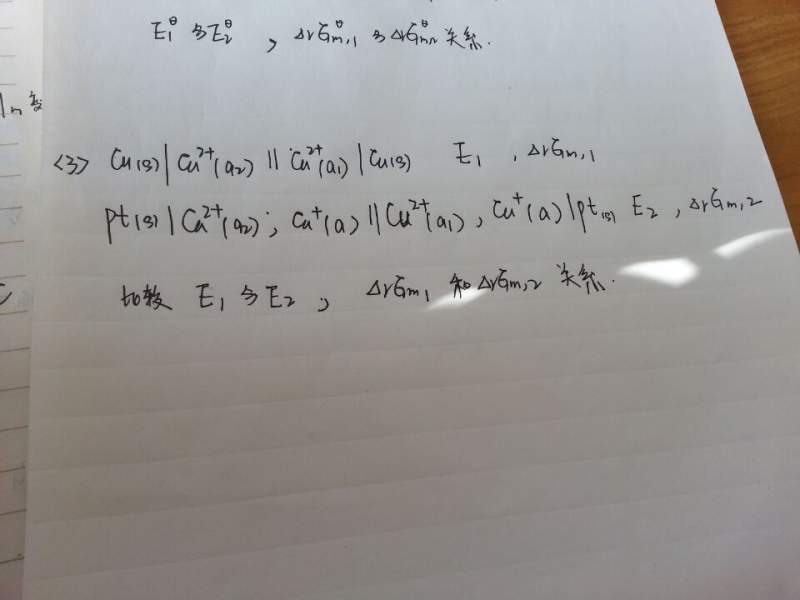 E₁^θ 与 E₂^θ , ΔrG^θm,1 与 ΔrG^θm,2 关系.
<3> Cu(s) | Cu²⁺(a₂) || Cu²⁺(a₁) | Cu(s) E₁ , ΔrGm,1
pt(s) | Cu²⁺(a₂), Cu⁺(a) || Cu²⁺(a₁), Cu⁺(a) | pt(s) E₂ , ΔrGm,2
比较 E₁ 与 E₂ , ΔrGm,1 和 ΔrGm,2 关系.